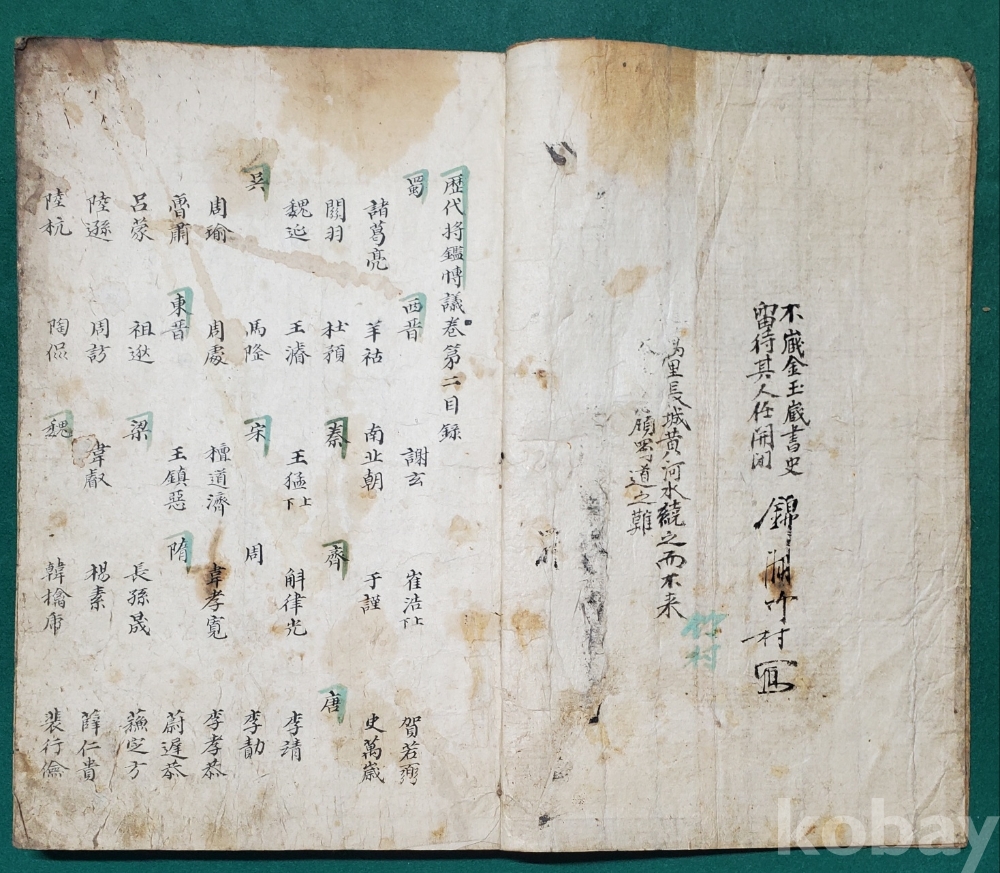 不藏金玉藏書史
留待其人任開閉
錦 竹村寫
竹村
里長城黃河水繞之而不来
道之難
歷代將鑑博議卷第二目錄
蜀 西晋 謝玄 崔浩上下 賀若弼
諸葛亮 羊祜 南北朝 于謹 史萬歲
關羽 杜預 秦 齊 唐
魏延 王濬 王猛上下 斛律光 李靖
吳 馬隆 宋 周 李勣
周瑜 周處 檀道濟 韋孝寬 李孝恭
魯肅 東晋 王鎮惡 隋 蔚遲恭
呂蒙 祖逖 梁 長孫晟 蘇定方
陸遜 周訪 韋叡 楊素 薛仁貴
陸杭 陶侃 魏 韓擒虎 裴行儉
kobay